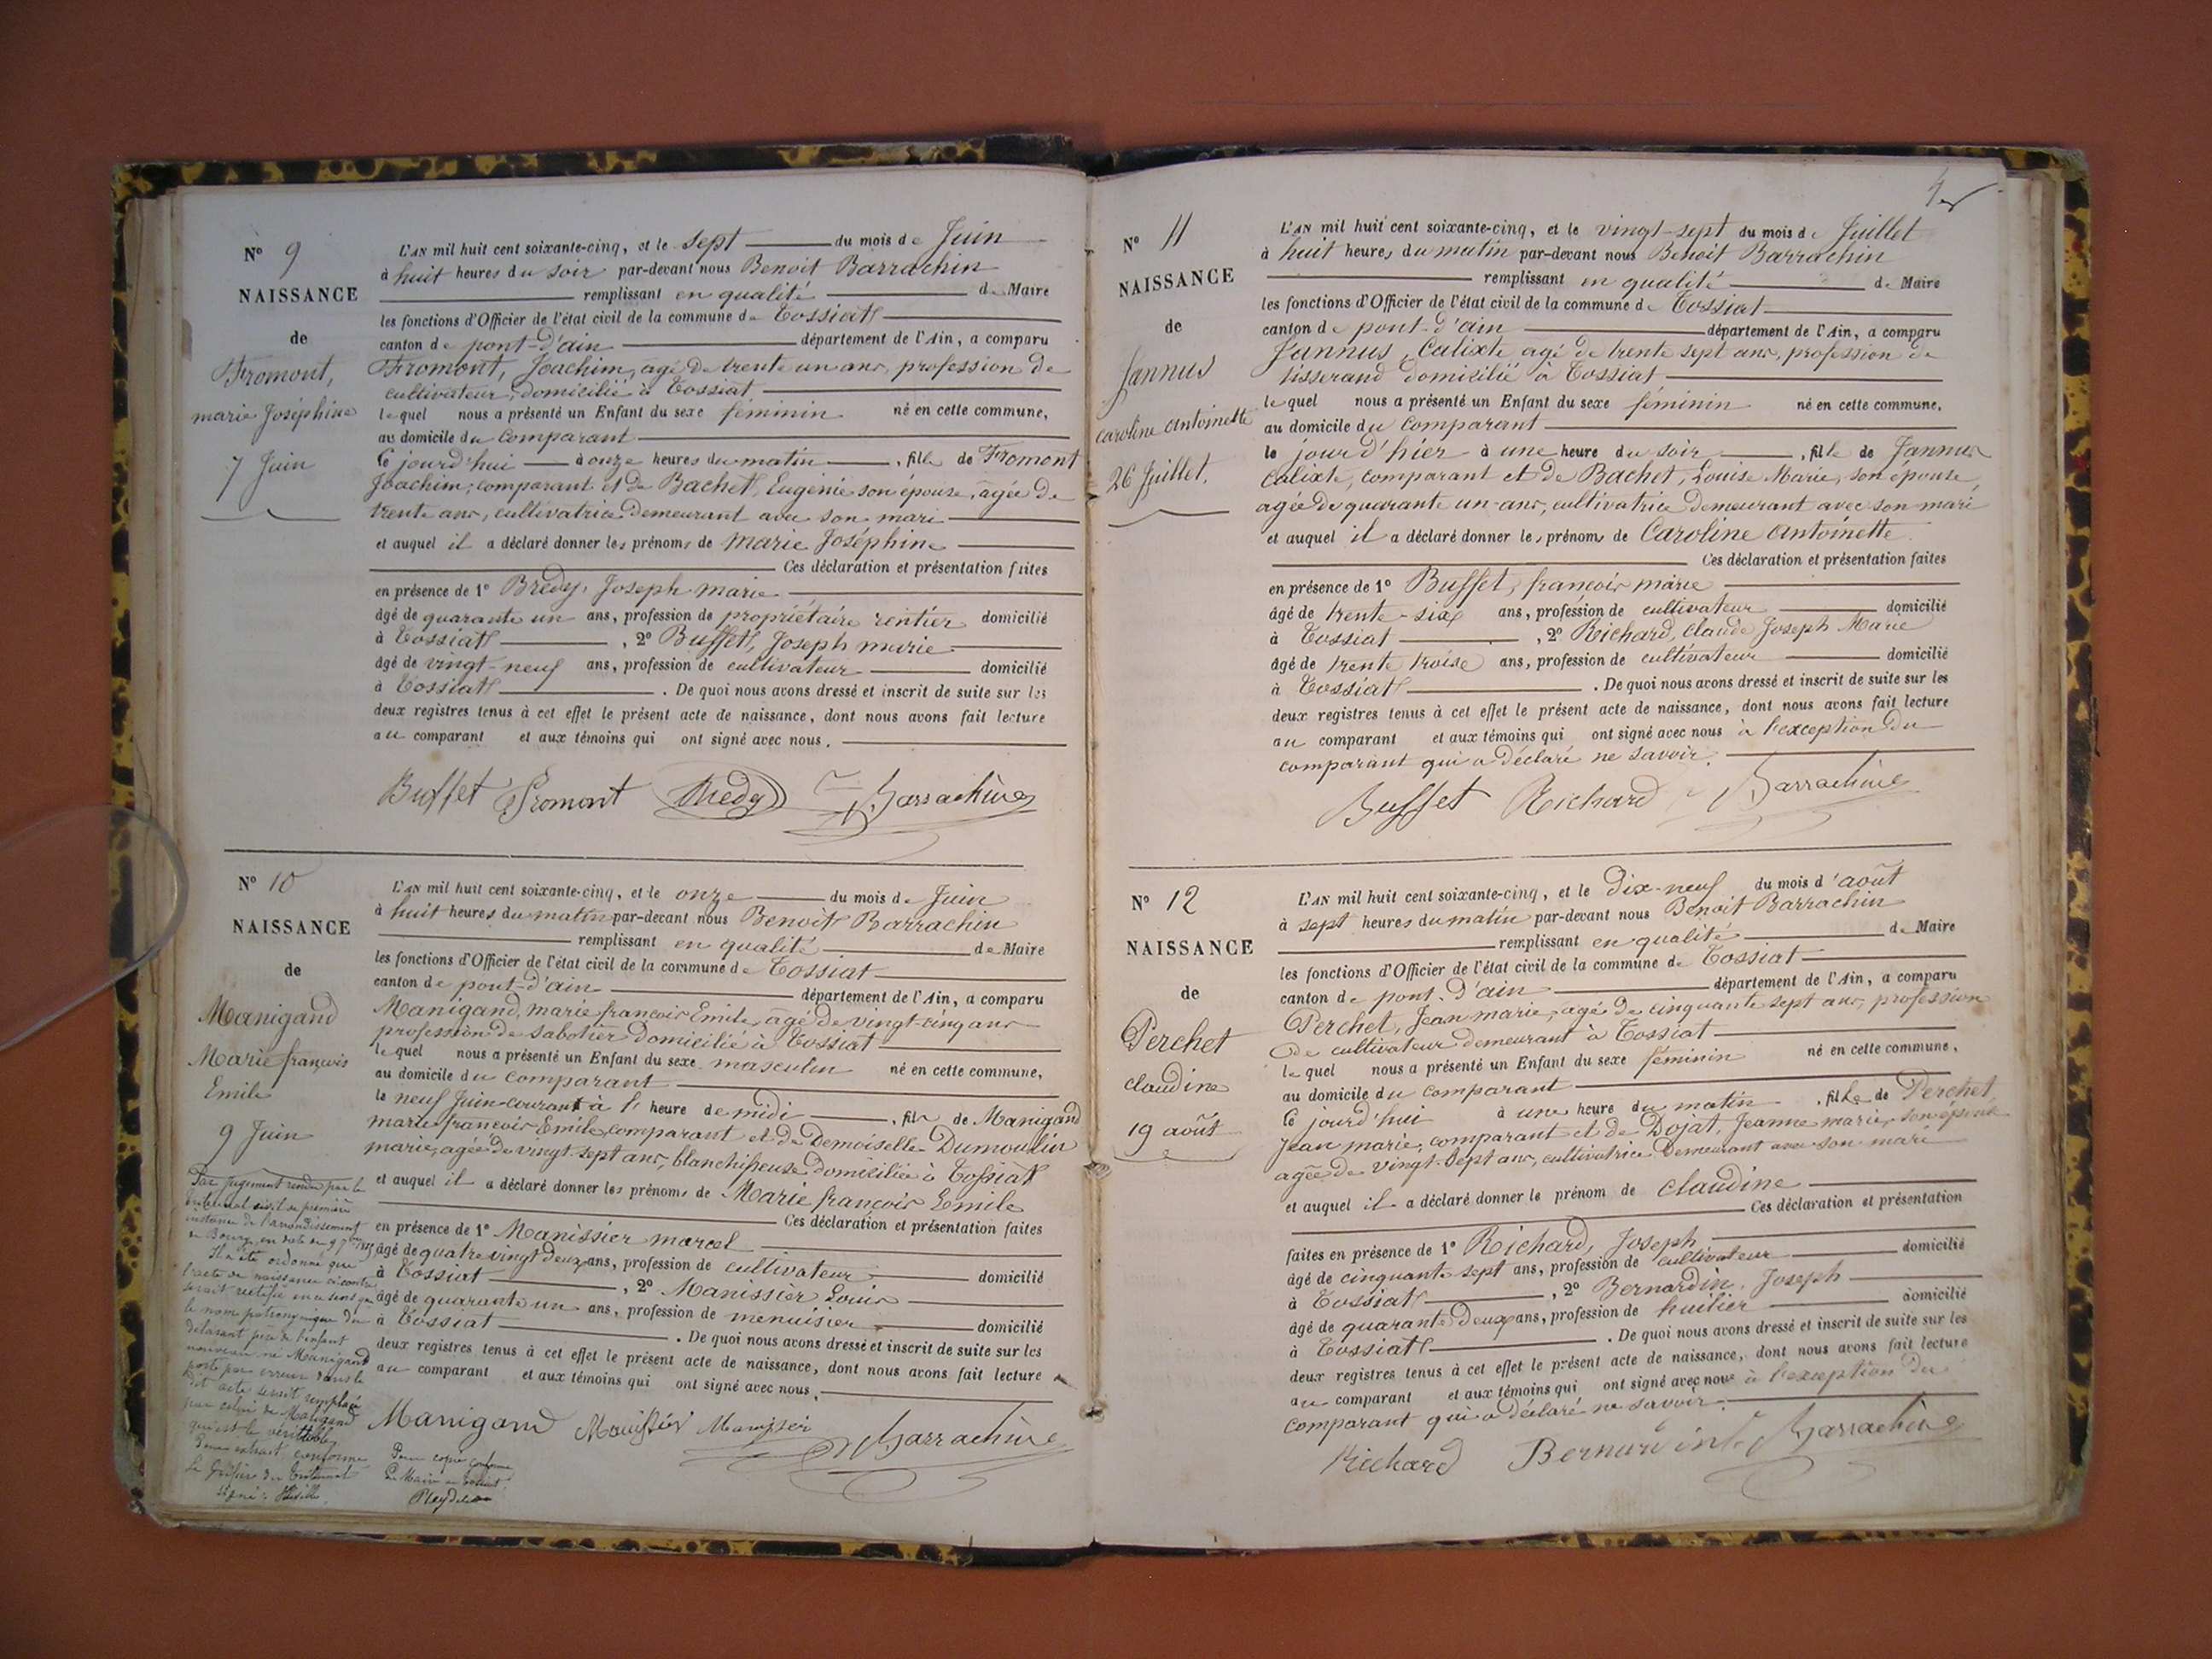 N° 9
NAISSANCE
de
Fromont,
marie Joséphine
7 Juin
L'AN mil huit cent soixante-cinq, et le sept du mois de Juin
à huit heures du soir par-devant nous Benoit Barrachin
remplissant en qualité de Maire
les fonctions d'Officier de l'état civil de la commune de Tossiat
canton de pont-d'ain département de l'Ain, a comparu
Fromont, Joachim, agé de trente un ans, profession de
cultivateur, domicilié à Tossiat
lequel nous a présenté un Enfant du sexe féminin né en cette commune,
au domicile du comparant
le jourd'hui à onze heures du matin, fille de Fromont
Joachim, comparant et de Bachet, Eugenie son épouse, agée de
trente ans, cultivatrice demeurant avec son mari
et auquel il a déclaré donner les prénoms de marie Joséphine
Ces déclaration et présentation faites
en présence de 1° Bredy, Joseph marie
âgé de quarante un ans, profession de propriétaire rentier domicilié
à Tossiat, 2° Buffet, Joseph marie
âgé de vingt-neuf ans, profession de cultivateur domicilié
à Tossiat. De quoi nous avons dressé et inscrit de suite sur les
deux registres tenus à cet effet le présent acte de naissance, dont nous avons fait lecture
au comparant et aux témoins qui ont signé avec nous.
Buffet Fromont Bredy Barrachin
N° 10
NAISSANCE
de
Manigand
Marie françois
Emile
9 Juin
Par jugement rendu par le
tribunal civil de première
instance de l'arrondissement
de Bourg, en date du 9
Il a été ordonné que
l'acte de naissance ci contre
serait rectifié en ce sens que
le nom patronymique du
déclarant père de l'enfant
nouveau né Manigand
porté par erreur dans le
dit acte serait remplacé
par celui de Maligand
qui est le véritable
Pour extrait conforme
Le Greffier du tribunal
signé:
L'AN mil huit cent soixante-cinq, et le onze du mois de Juin
à huit heures du matin par-devant nous Benoit Barrachin
remplissant en qualité de Maire
les fonctions d'Officier de l'état civil de la commune de Tossiat
canton de pont-d'ain département de l'Ain, a comparu
Manigand, marie françois Emile, âgé de vingt-cinq ans
profession de sabotier domicilié à Tossiat
lequel nous a présenté un Enfant du sexe masculin né en cette commune,
au domicile du comparant
le neuf Juin courant à l' heure de midi, fils de Manigand
marie françois Emile, comparant et de Demoiselle Dumoulin
marie, agée de vingt sept ans, blanchisseuse domiciliée à Tossiat
et auquel il a déclaré donner les prénoms de Marie françois Emile
Ces déclaration et présentation faites
en présence de 1° Manissier marcel
âgé de quatre vingt deux ans, profession de cultivateur domicilié
à Tossiat, 2° Manissier Louis
âgé de quarante un ans, profession de menuisier domicilié
à Tossiat. De quoi nous avons dressé et inscrit de suite sur les
deux registres tenus à cet effet le présent acte de naissance, dont nous avons fait lecture
au comparant et aux témoins qui ont signé avec nous.
Manigand Manissier Manissier Barrachin
Pour copie conforme
Le Maire de Tossiat
N° 11
NAISSANCE
de
Jannus
caroline antoinette
26 Juillet.
L'AN mil huit cent soixante-cinq, et le vingt-sept du mois de Juillet
à huit heures du matin par-devant nous Benoit Barrachin
remplissant en qualité de Maire
les fonctions d'Officier de l'état civil de la commune de Tossiat
canton de pont-d'ain département de l'Ain, a comparu
Jannus, Calixte agé de trente sept ans, profession de
tisserand domicilié à Tossiat
lequel nous a présenté un Enfant du sexe féminin né en cette commune,
au domicile du comparant
le jour d'hier à une heure du soir, fille de Jannus
Calixte, comparant et de Bachet, Louise Marie, son épouse,
agée de quarante un ans, cultivatrice demeurant avec son mari
et auquel il a déclaré donner les prénoms de Caroline Antoinette
Ces déclaration et présentation faites
en présence de 1° Buffet, françois marie
âgé de trente-six ans, profession de cultivateur domicilié
à Tossiat, 2° Richard, Claude Joseph Marie
âgé de trente troise ans, profession de cultivateur domicilié
à Tossiat. De quoi nous avons dressé et inscrit de suite sur les
deux registres tenus à cet effet le présent acte de naissance, dont nous avons fait lecture
au comparant et aux témoins qui ont signé avec nous à l'exception du
comparant qui a déclaré ne savoir.
Buffet Richard Barrachin
N° 12
NAISSANCE
de
Perchet
claudine
19 août
L'AN mil huit cent soixante-cinq, et le dix-neuf du mois d'août
à sept heures du matin par-devant nous Benoit Barrachin
remplissant en qualité de Maire
les fonctions d'Officier de l'état civil de la commune de Tossiat
canton de pont-d'ain département de l'Ain, a comparu
Perchet, Jean marie, agé de cinquante sept ans, profession
de cultivateur demeurant à Tossiat
lequel nous a présenté un Enfant du sexe féminin né en cette commune,
au domicile du comparant
le jourd'hui à une heure du matin, fille de Perchet,
Jean marie, comparant et de Dojat, Jeanne marie, son épouse
agée de vingt-sept ans, cultivatrice demeurant avec son mari
et auquel il a déclaré donner le prénom de claudine
Ces déclaration et présentation
faites en présence de 1° Richard, Joseph
âgé de cinquante sept ans, profession de cultivateur domicilié
à Tossiat, 2° Bernardin, Joseph
âgé de quarante deux ans, profession de huilier domicilié
à Tossiat. De quoi nous avons dressé et inscrit de suite sur les
deux registres tenus à cet effet le présent acte de naissance, dont nous avons fait lecture
au comparant et aux témoins qui ont signé avec nous à l'exception du
comparant qui a déclaré ne savoir.
Richard Bernardin Barrachin